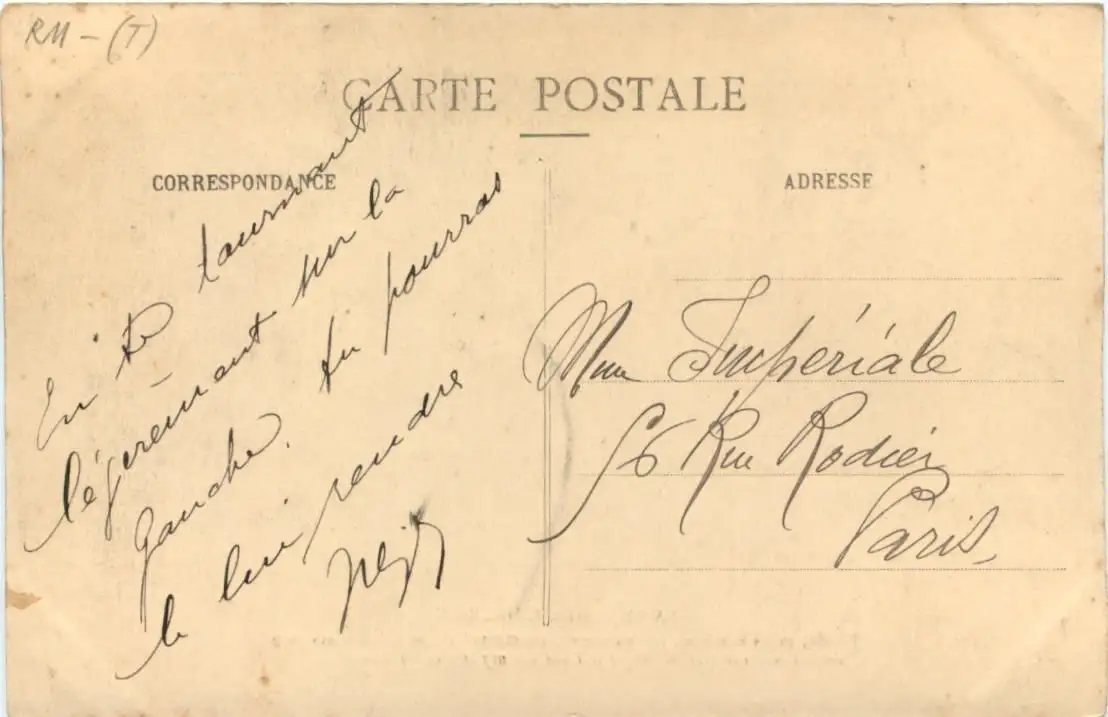 RM - (T)
CARTE POSTALE
CORRESPONDANCE
ADRESSE
En te tournant
légèrement sur la
gauche. tu pourras
le lui rendre
Mme Impériale
56 Rue Rodier
Paris